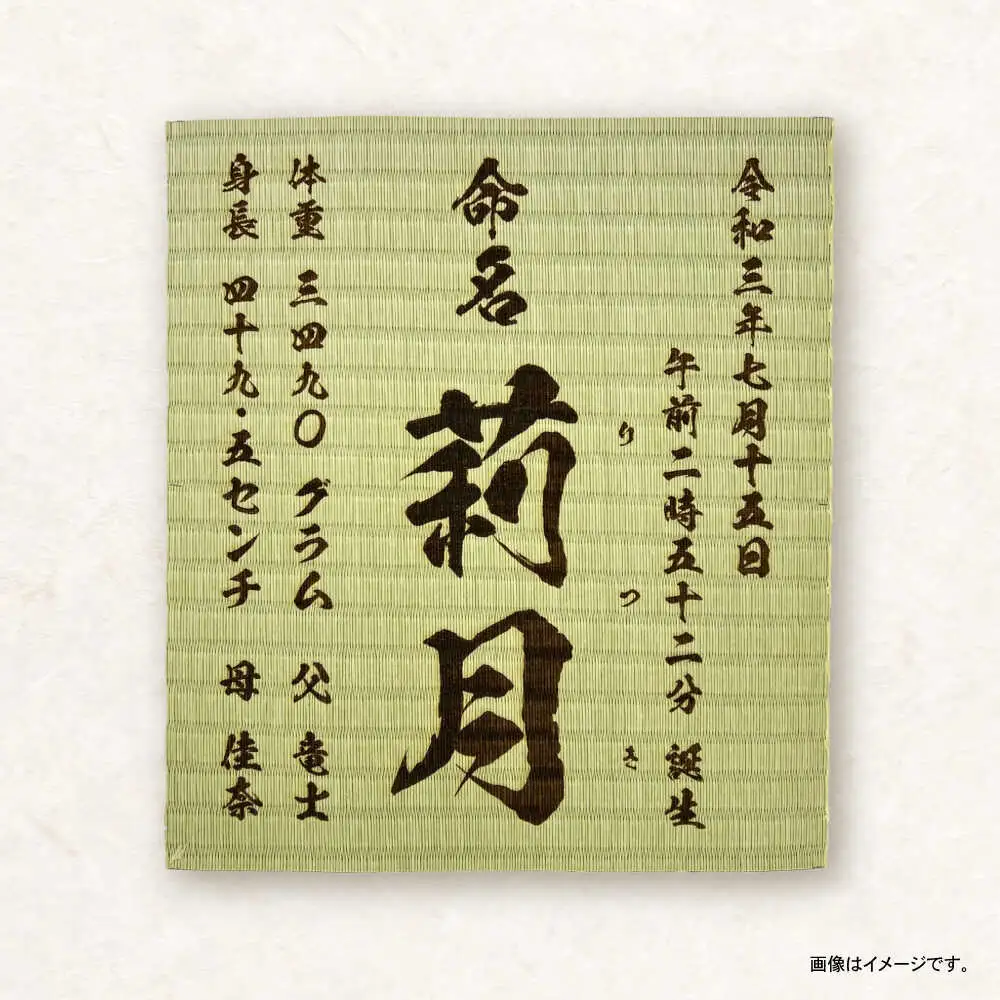 令和三年七月十五日
午前二時五十二分 誕生
りつき
命名 莉月
体重 三四九〇グラム 父 竜士
身長 四十九・五センチ 母 佳奈
画像はイメージです。